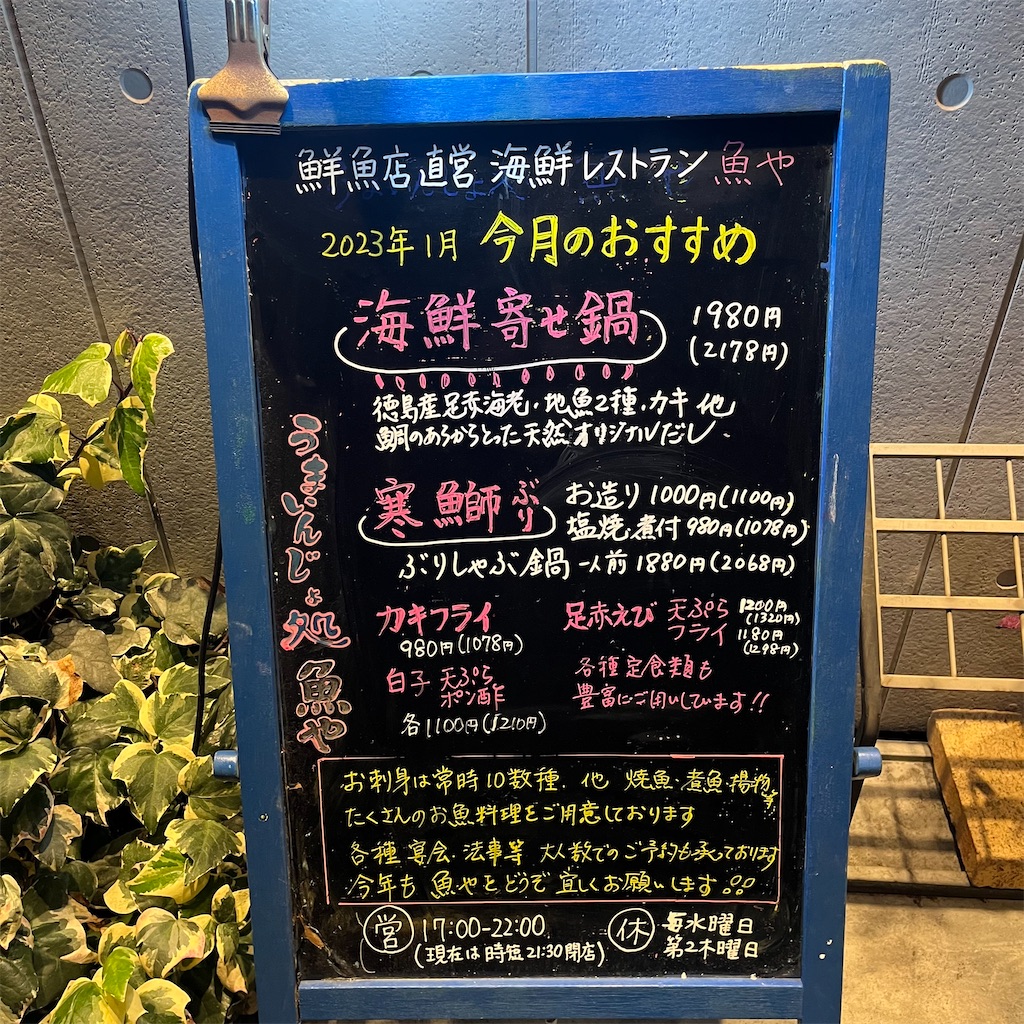 鮮魚店直営 海鮮レストラン 魚や
2023年1月 今月のおすすめ
海鮮寄せ鍋 1980円
(2178円)
徳島産足赤海老・地魚2種・カキ 他
鯛のあらからとった天然オリジナルだし
寒鰤 ぶり お造り 1000円(1100円)
塩焼・煮付 980円(1078円)
ぶりしゃぶ鍋 一人前 1880円(2068円)
カキフライ
980円(1078円)
足赤えび 天ぷら 1200円
(1320円)
フライ 1180円
(1298円)
白子 天ぷら
ポン酢
各1100円(1210円)
各種定食類も
豊富にご用いしています!!
うまいんじょ処 魚や
お刺身は常時10数種、他 焼魚・煮魚・揚物等
たくさんのお魚料理をご用意しております
各種宴会・法事等 大人数でのご予約も承っております
今年も 魚やをどうぞ 宜しくお願いします!!
営 17:00-22:00
(現在は時短21:30閉店)
休 毎水曜日
第2木曜日